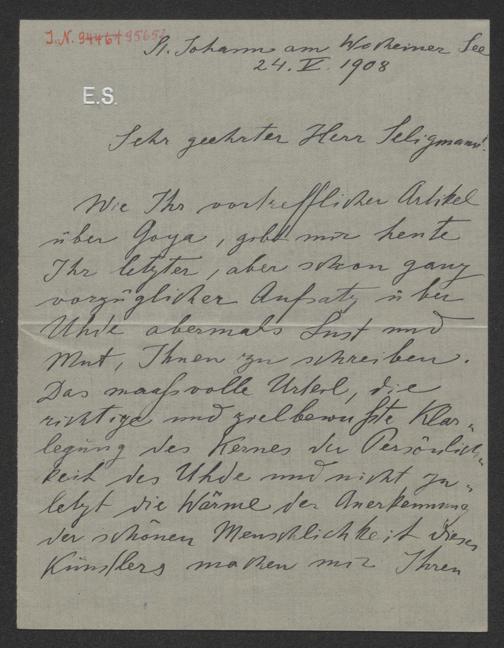 J.N. 94461 95652
St. Johann am Wocheiner See
24. V. 1908
E.S.
Sehr geehrter Herr Seligmann!
Wie Ihr vortrefflicher Artikel
über Goya, gibt mir heute
Ihr letzter, aber schon ganz
vorzüglicher Aufsatz über
Uhde abermals Lust und
Mut, Ihnen zu schreiben.
Das maassvolle Urteil, die
richtige und zielbewußte Klar-
legung des Kernes der Persönlich-
keit des Uhde und nicht zu-
letzt die Wärme der Anerkennung
der schönen Menschlichkeit dieses
Künstlers machen mir Ihren